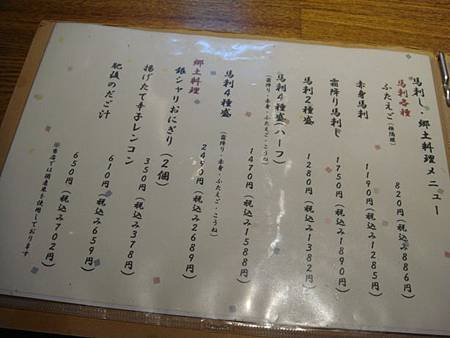 馬刺し 郷土料理メニュー
馬刺各種
ふたえご(候補腹)
820円(税込み886円)
赤身馬刺
1190円(税込み1285円)
霜降り馬刺し
1750円(税込み1890円)
馬刺2種盛
1280円(税込み1382円)
馬刺4種盛(ハーフ)
(霜降り・赤身・ふたえご・こうね)
1470円(税込み1588円)
馬刺4種盛
(霜降り・赤身・ふたえご・こうね)
2490円(税込み2689円)
郷土料理
銀シャリおにぎり(2個)
350円(税込み378円)
揚げたて辛子レンコン
610円(税込み659円)
肥後のだご汁
650円(税込み702円)
※当店では国産米を使用しております